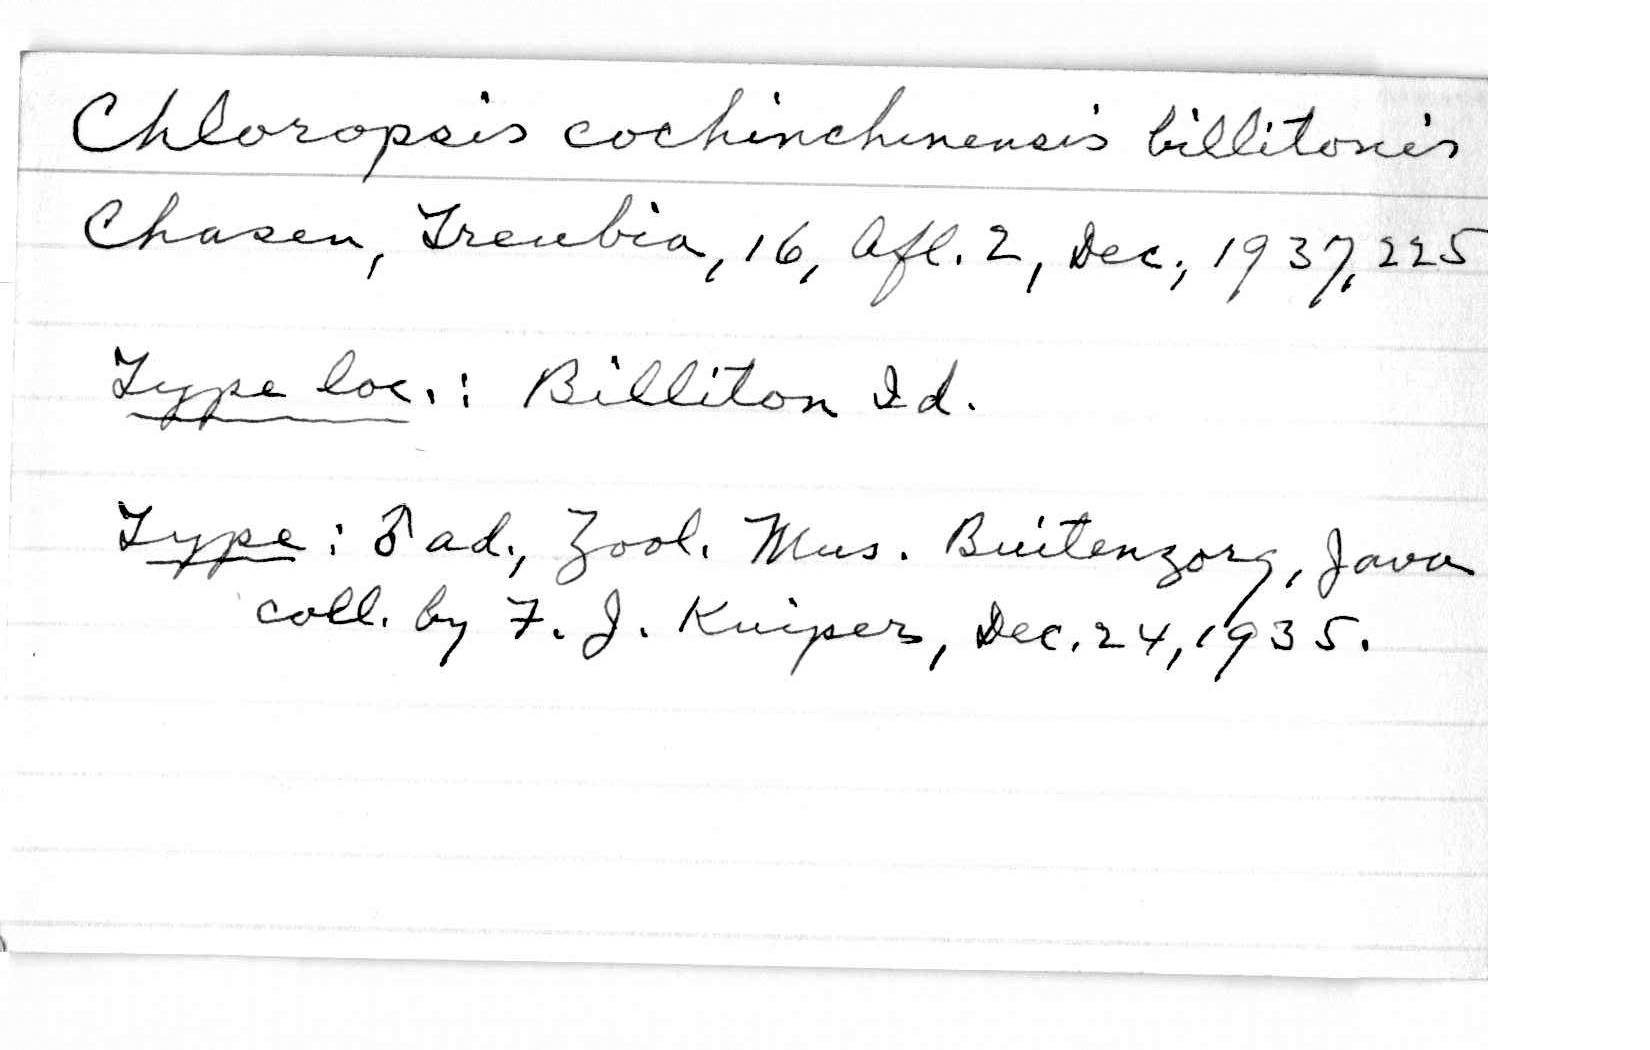 Chloropsis cochinchinensis billitonis
Chasen, Treubia, 16, Afl. 2, Dec., 1937, 225
Type loc.: Billiton Id.
Type: ♂ ad., Zool. Mus. Buitenzorg, Java
coll. by F. J. Kuiper, Dec. 24, 1935.